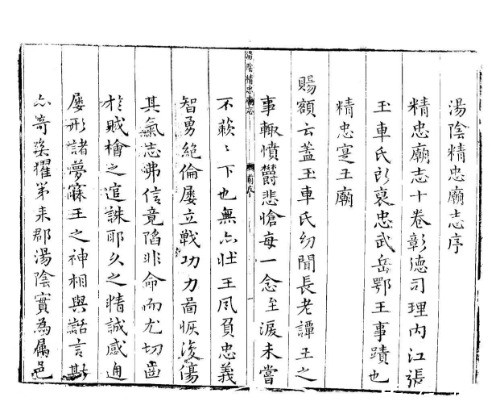 湯陰精忠廟志序
精忠廟志十卷彰德司理內江張
玉車氏所裒忠武岳鄂王事蹟也
精忠寔王廟
賜額云蓋玉車氏幼聞長老譚王之
事輙憤欝悲愴每一念至淚未嘗
不蔌〻下也無亦壯王夙負忠義
智勇絕倫屢立戰功力啚恢復傷
其氣志弗信竟陷非命而尤切齒
於賊檜之逭誅耶久之精誠感通
屢形諸夢寐王之神相與語言斯
亦奇矣擢第來郡湯陰實為屬邑